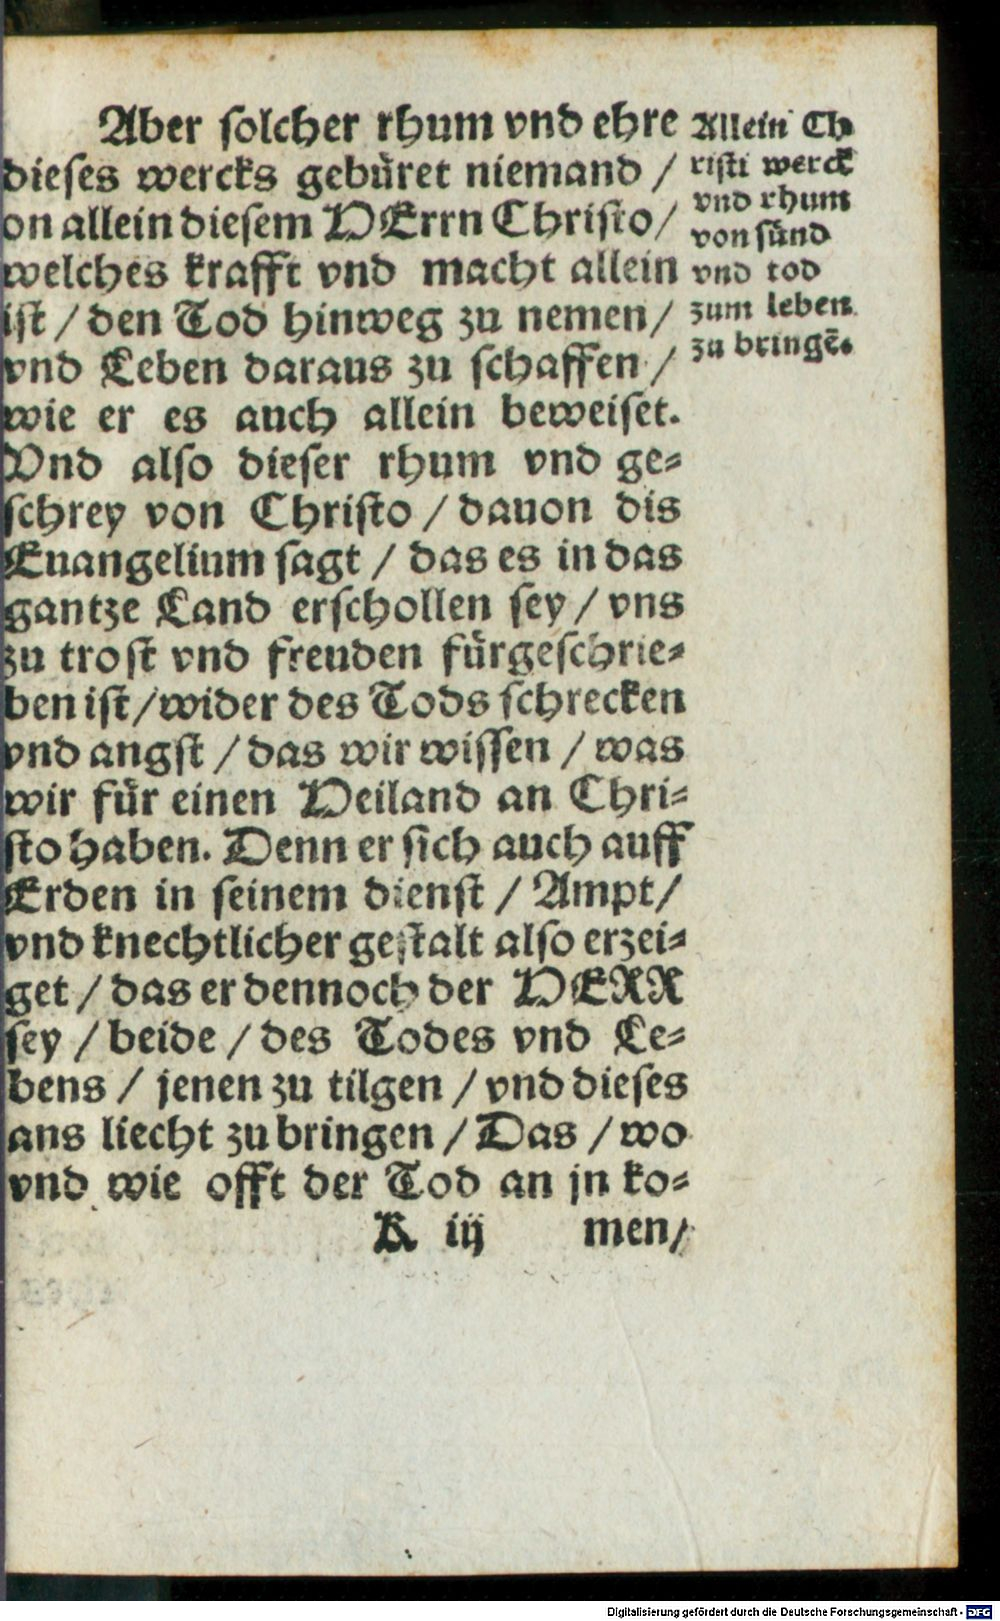 Aber solcher rhum vnd ehre
dieses wercks gebüret niemand /
on allein diesem HErrn Christo /
welches krafft vnd macht allein
ist / den Tod hinweg zu nemen /
vnd Leben daraus zu schaffen /
wie er es auch allein beweiset.
Vnd also dieser rhum vnd ge-
schrey von Christo / dauon dis
Euangelium sagt / das es in das
gantze Land erschollen sey / vns
zu trost vnd freuden fürgeschrie-
ben ist / wider des Tods schrecken
vnd angst / das wir wissen / was
wir für einen Heiland an Chri-
sto haben. Denn er sich auch auff
Erden in seinem dienst / Ampt /
vnd knechtlicher gestalt also erzei-
get / das er dennoch der HERR
sey / beide / des Todes vnd Le-
bens / jenen zu tilgen / vnd dieses
ans liecht zu bringen / Das / wo
vnd wie offt der Tod an jn ko-
K iij men /
Allein Ch
risti werck
vnd rhum
von sünd
vnd tod
zum leben
zu bringē.
Digitalisierung gefördert durch die Deutsche Forschungsgemeinschaft - DFG